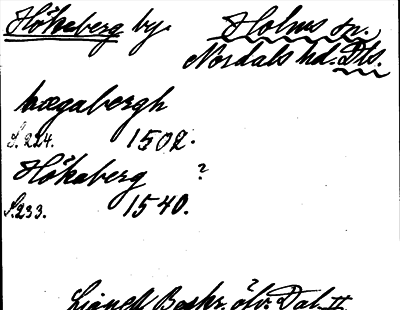 Hökeberg by. Holms sn.
Nordals hd. Dls.
hægabergh
S. 224. 1502.
Hökaberg ?
S. 233. 1540.
Lignell Beskr. öfv. Dal II